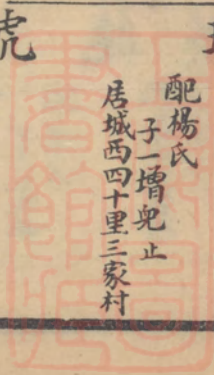 配楊氏
子一增兒止
居城西四十里三家村
虎